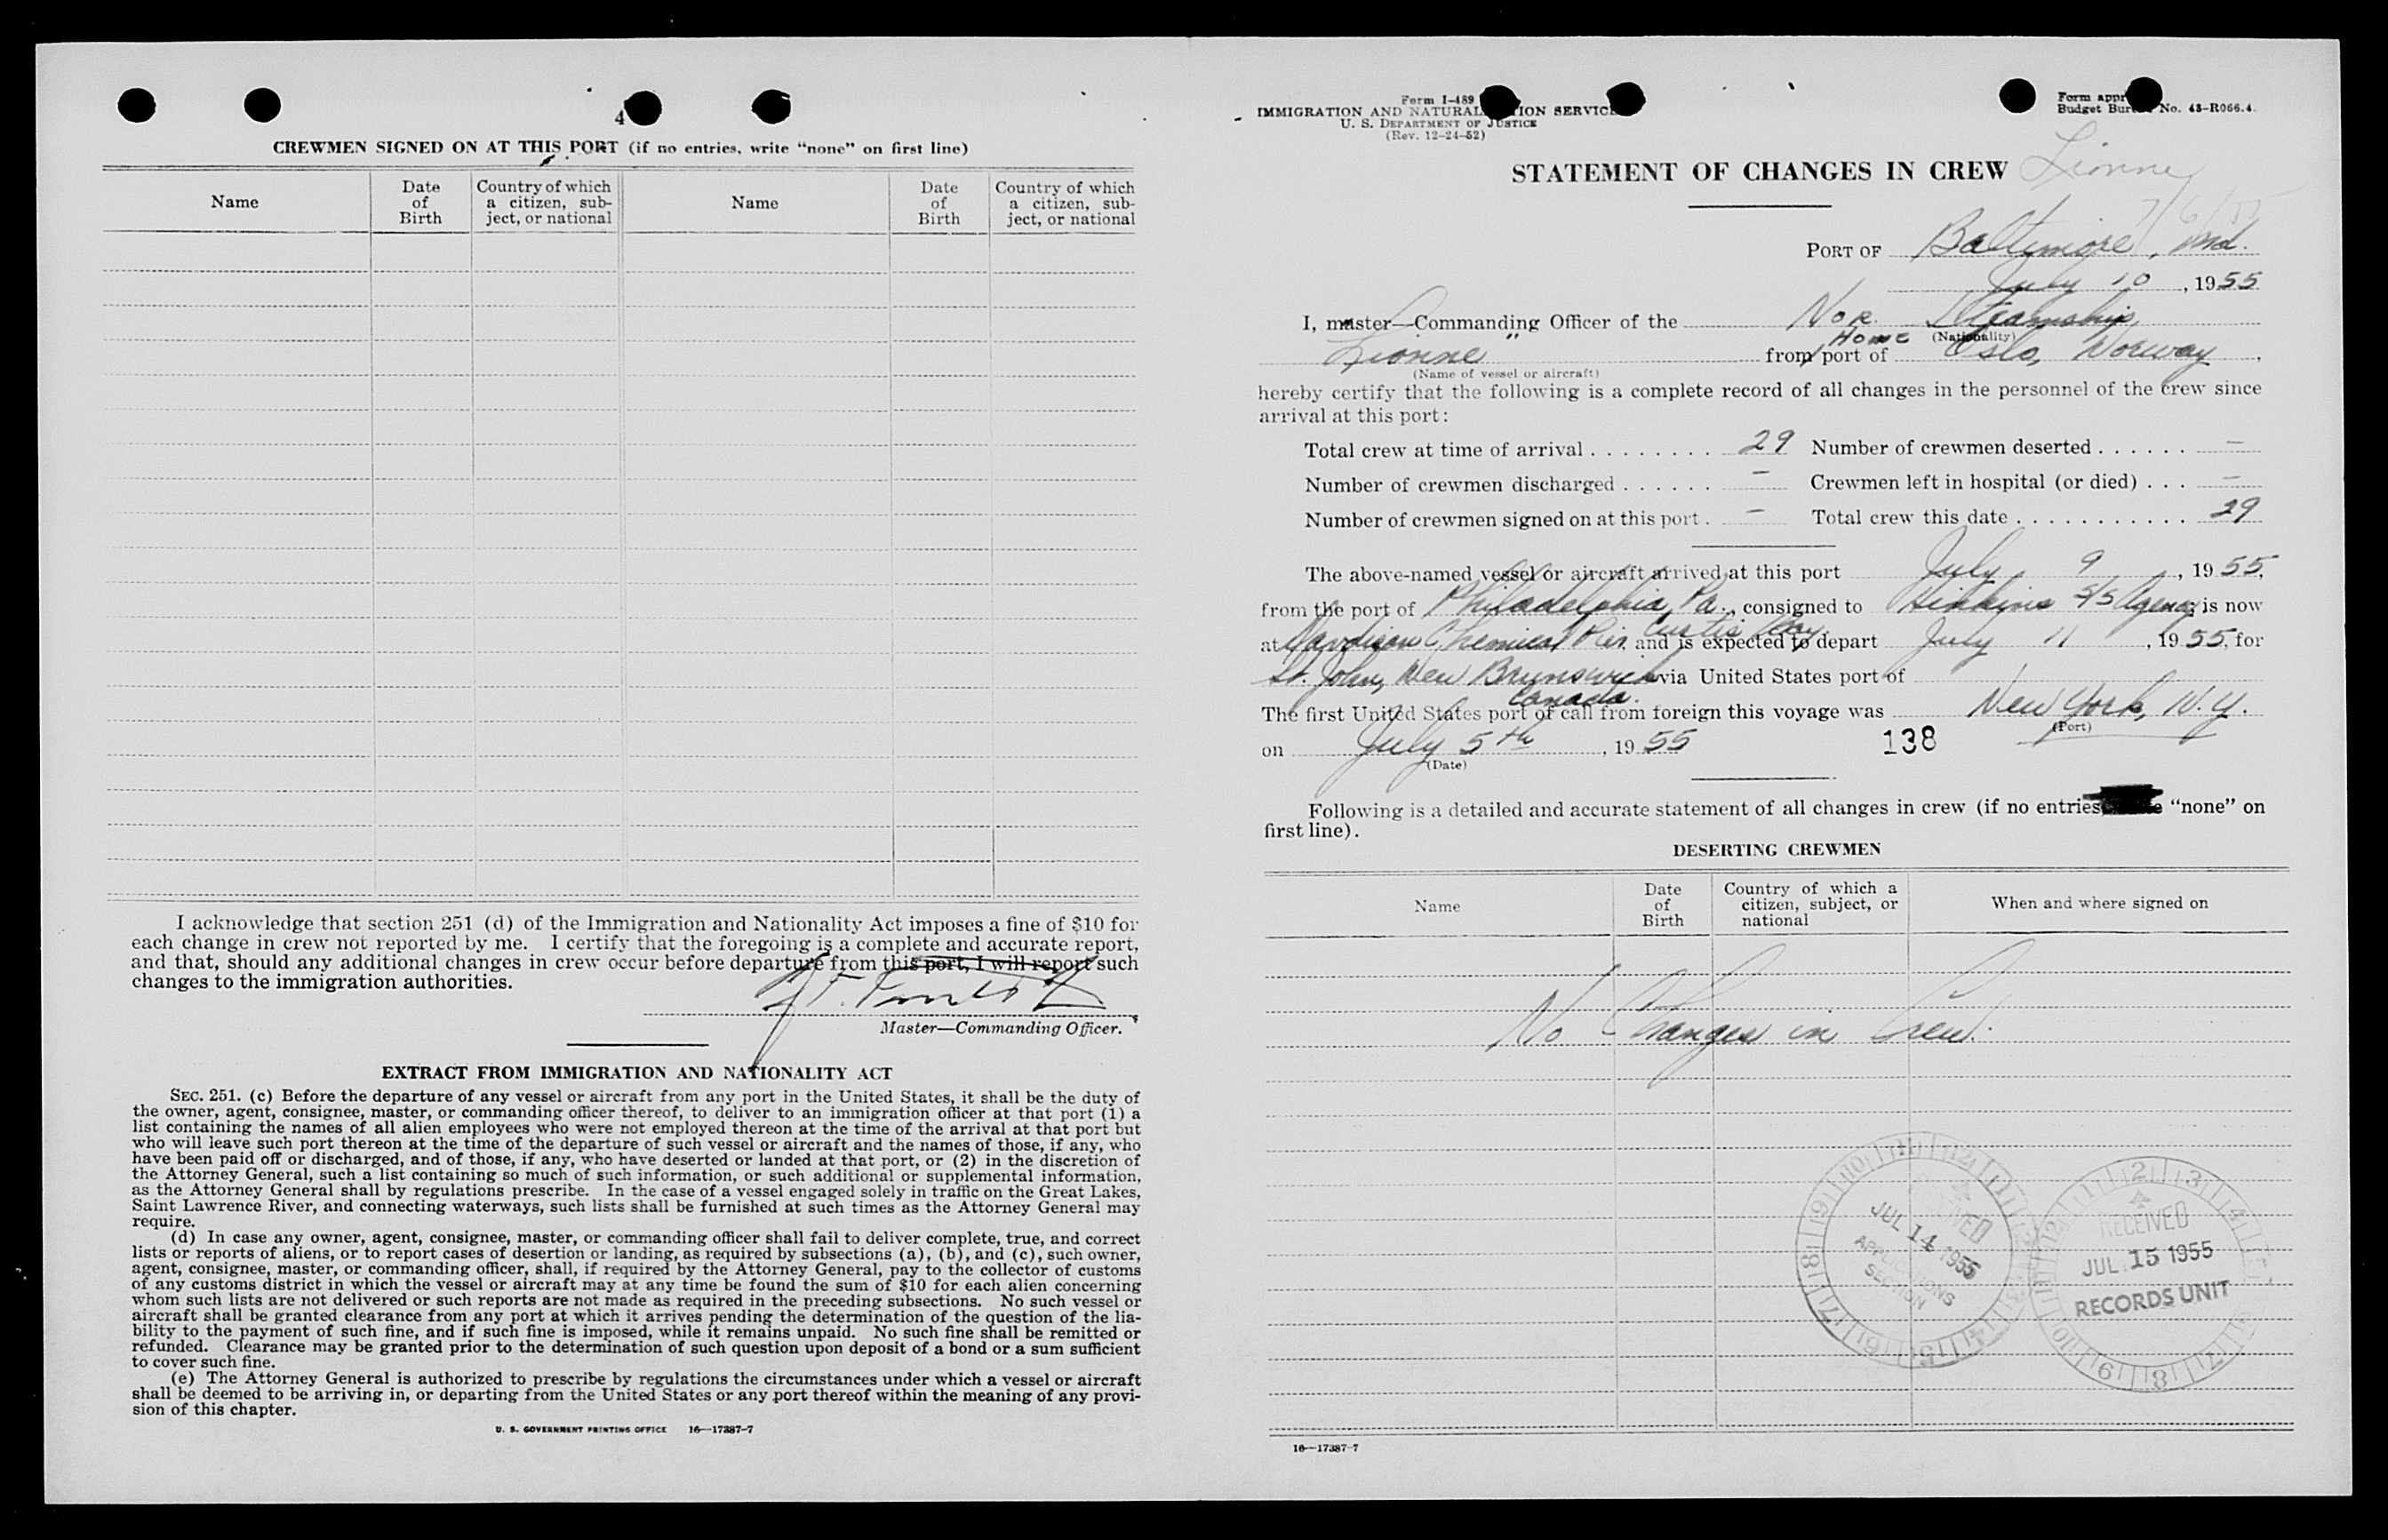 4
CREWMEN SIGNED ON AT THIS PORT (if no entries, write "none" on first line)
Name
Date
of
Birth
Country of which
a citizen, sub-
ject, or national
Name
Date
of
Birth
Country of which
a citizen, sub-
ject, or national
I acknowledge that section 251 (d) of the Immigration and Nationality Act imposes a fine of $10 for
each change in crew not reported by me. I certify that the foregoing is a complete and accurate report,
and that, should any additional changes in crew occur before departure from this port, I will report such
changes to the immigration authorities.
Master—Commanding Officer.
EXTRACT FROM IMMIGRATION AND NATIONALITY ACT
SEC. 251. (c) Before the departure of any vessel or aircraft from any port in the United States, it shall be the duty of
the owner, agent, consignee, master, or commanding officer thereof, to deliver to an immigration officer at that port (1) a
list containing the names of all alien employees who were not employed thereon at the time of the arrival at that port but
who will leave such port thereon at the time of the departure of such vessel or aircraft and the names of those, if any, who
have been paid off or discharged, and of those, if any, who have deserted or landed at that port, or (2) in the discretion of
the Attorney General, such a list containing so much of such information, or such additional or supplemental information,
as the Attorney General shall by regulations prescribe. In the case of a vessel engaged solely in traffic on the Great Lakes,
Saint Lawrence River, and connecting waterways, such lists shall be furnished at such times as the Attorney General may
require.
(d) In case any owner, agent, consignee, master, or commanding officer shall fail to deliver complete, true, and correct
lists or reports of aliens, or to report cases of desertion or landing, as required by subsections (a), (b), and (c), such owner,
agent, consignee, master, or commanding officer, shall, if required by the Attorney General, pay to the collector of customs
of any customs district in which the vessel or aircraft may at any time be found the sum of $10 for each alien concerning
whom such lists are not delivered or such reports are not made as required in the preceding subsections. No such vessel or
aircraft shall be granted clearance from any port at which it arrives pending the determination of the question of the lia-
bility to the payment of such fine, and if such fine is imposed, while it remains unpaid. No such fine shall be remitted or
refunded. Clearance may be granted prior to the determination of such question upon deposit of a bond or a sum sufficient
to cover such fine.
(e) The Attorney General is authorized to prescribe by regulations the circumstances under which a vessel or aircraft
shall be deemed to be arriving in, or departing from the United States or any port thereof within the meaning of any provi-
sion of this chapter.
U. S. GOVERNMENT PRINTING OFFICE 16—17387-7
Form I-489
IMMIGRATION AND NATURALIZATION SERVICE
U. S. DEPARTMENT OF JUSTICE
(Rev. 12-24-52)
Form appr
Budget Bureau No. 43-R066.4.
STATEMENT OF CHANGES IN CREW Lionne
7/6/55
PORT OF Baltimore, Md.
July 10, 1955
I, master—Commanding Officer of the Nor. Steamship,
Home (Nationality)
"Lionne" from port of Oslo, Norway,
(Name of vessel or aircraft)
hereby certify that the following is a complete record of all changes in the personnel of the crew since
arrival at this port:
Total crew at time of arrival . . . . . . . . 29 Number of crewmen deserted . . . . . . —
Number of crewmen discharged . . . . . . — Crewmen left in hospital (or died) . . . —
Number of crewmen signed on at this port . — Total crew this date . . . . . . . . . . . 29
The above-named vessel or aircraft arrived at this port July 9, 1955,
from the port of Philadelphia, Pa., consigned to S/S Agency is now
Curtis Bay
at Davidson Chemical Pier and is expected to depart July 11, 1955, for
St. John, New Brunswick via United States port of
Canada.
The first United States port of call from foreign this voyage was New York, N.Y.
(Port)
on July 5th, 1955 138
(Date)
Following is a detailed and accurate statement of all changes in crew (if no entries, "none" on
first line).
DESERTING CREWMEN
Name
Date
of
Birth
Country of which a
citizen, subject, or
national
When and where signed on
No Changes in Crew.
RECEIVED
JUL 14 1955
APPLICATIONS
SECTION
RECEIVED
JUL 15 1955
RECORDS UNIT
16—17387-7